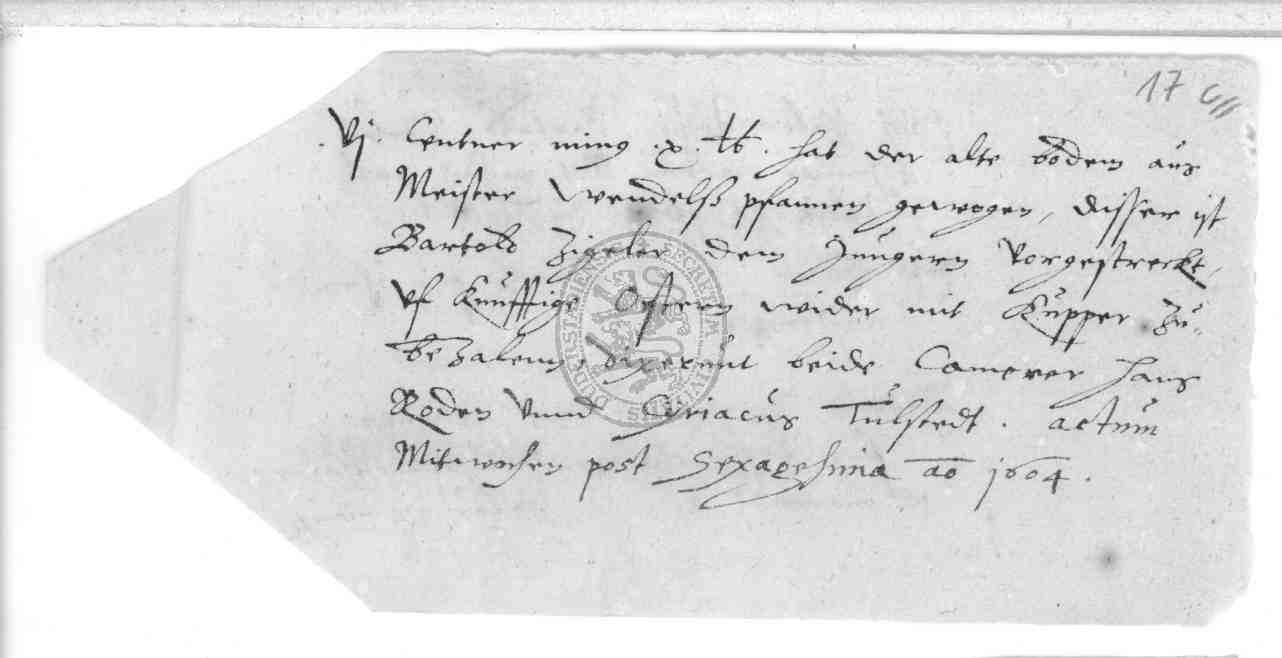 17
.vj. Centner minꝰ .x. ℔. hat der alte bodem aus
Meister Wendelß pfannen gewogen, disser ist
Bartold Zigeler dem Jungern vorgestreckt,
vf Künfftige Ostern wider mit Kupper zu
bezalenn, dixerunt beide Camerer Hans
Roden vnnd Ciriacus Tulstedt. actum
Mitwochen post Sexagesima ao 1604.